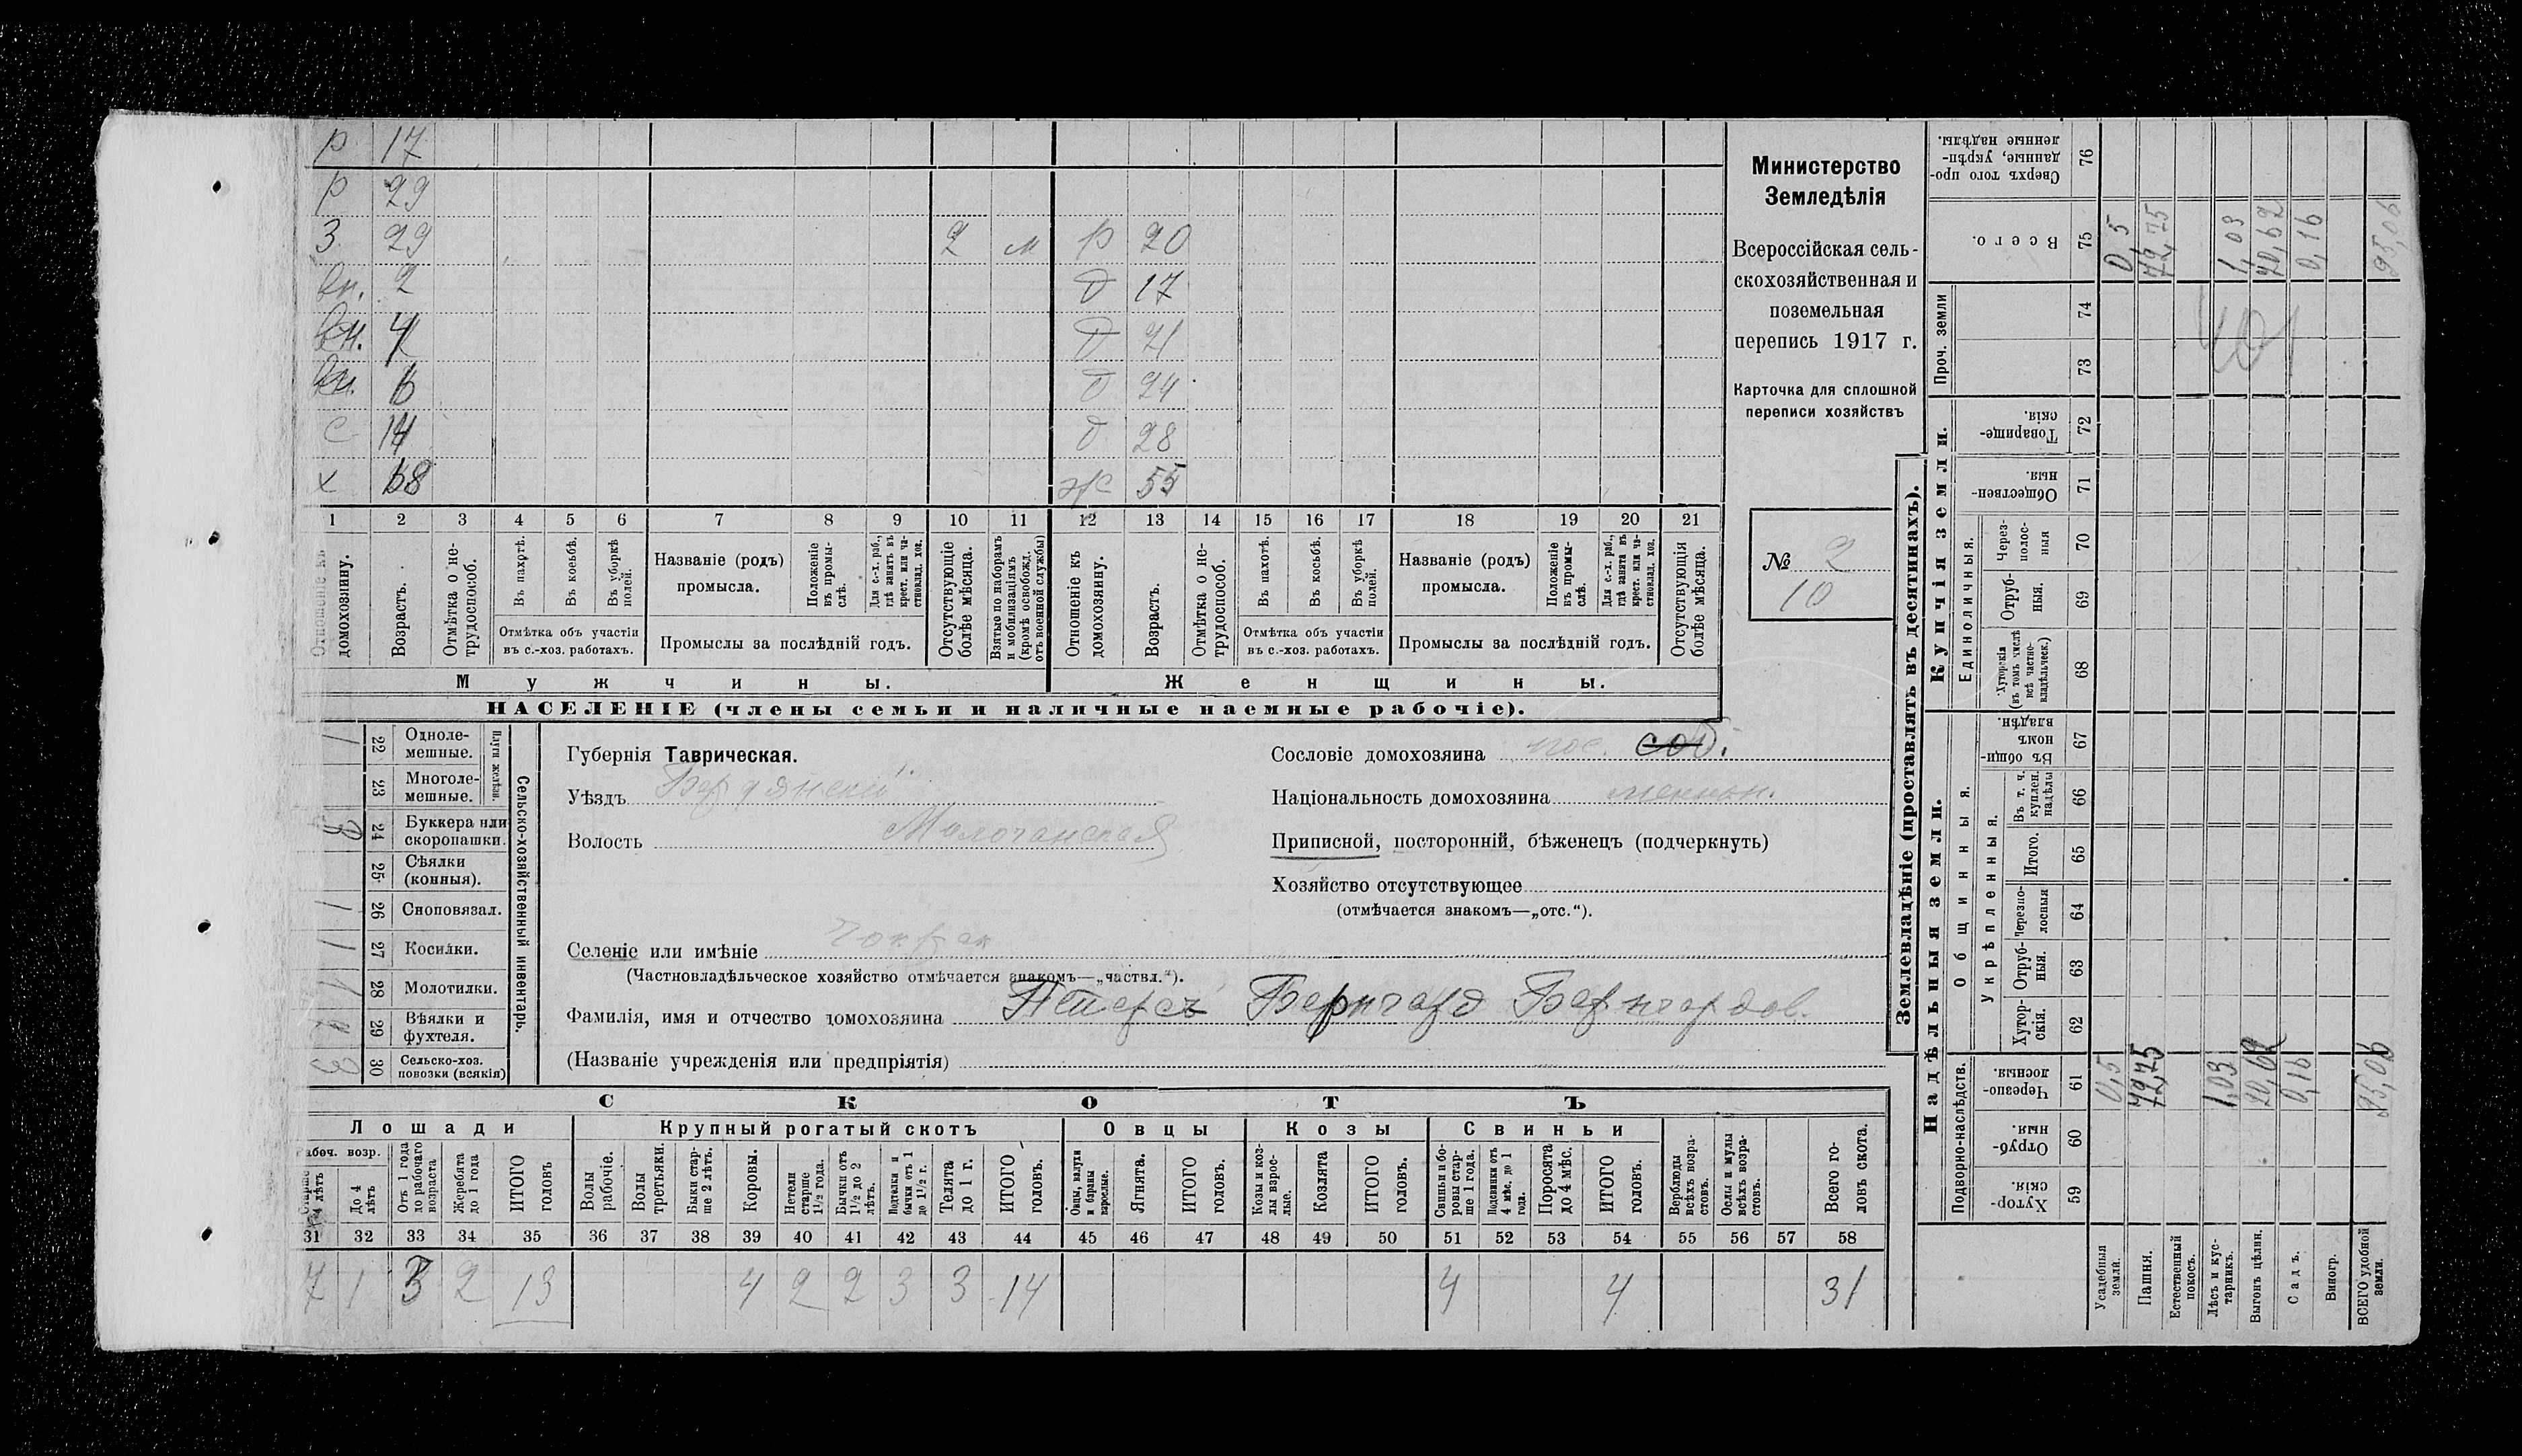 р 17
р 29
З. 29 2 м р 20
вн. 2 д 17
вн. 4 д 21
вн. 6 д 24
с 14 д 28
х 68 ж 55
1 2 3 4 5 6 7 8 9 10 11 12 13 14 15 16 17 18 19 20 21
Отношеніе къ домохозяину.
Возрастъ.
Отмѣтка о не-трудоспособ.
Въ пахотѣ.
Въ косьбѣ.
Въ уборкѣ полей.
Отмѣтка объ участіи
въ с.-хоз. работахъ.
Названіе (родъ)
промысла.
Положеніе въ промы-слѣ.
Для с.-х. раб., гдѣ занятъ въ крест. или ча-стновлад. хоз.
Промыслы за послѣдній годъ.
Отсутствующіе болѣе мѣсяца.
Взятые по наборамъ и мобилизаціямъ (кромѣ освобожд. отъ военной службы)
Отношеніе къ домохозяину.
Возрастъ.
Отмѣтка о не-трудоспособ.
Въ пахотѣ.
Въ косьбѣ.
Въ уборкѣ полей.
Отмѣтка объ участіи
въ с.-хоз. работахъ.
Названіе (родъ)
промысла.
Положеніе въ промы-слѣ.
Для с.-х. раб., гдѣ занята въ крест. или ча-стновлад. хоз.
Промыслы за послѣдній годъ.
Отсутствующія болѣе мѣсяца.
Мужчины.
Женщины.
НАСЕЛЕНІЕ (члены семьи и наличные наемные рабочіе).
Министерство
Земледѣлія
Всероссійская сель-
скохозяйственная и
поземельная
перепись 1917 г.
Карточка для сплошной
переписи хозяйствъ
№ 2
10
Сельско-хозяйственный инвентарь.
Плуги желѣзн.
22 Одноле-мешные. 1
23 Многоле-мешные.
24 Буккера или скоропашки.
25. Сѣялки (конныя).
26 Сноповязал. 1
27 Косилки. 1
28 Молотилки. 1
29 Вѣялки и фухтеля.
30 Сельско-хоз. повозки (всякія) 3
Губернія Таврическая.
Уѣздъ Бердянскій
Волость Молочанская
Селеніе или имѣніе Чокрак
(Частновладѣльческое хозяйство отмѣчается знакомъ—„частвл.“).
Фамилія, имя и отчество домохозяина Петерсъ Бернгард Бернгардов.
(Названіе учрежденія или предпріятія)
Сословіе домохозяина пос. соб.
Національность домохозяина меннон.
Приписной, посторонній, бѣженецъ (подчеркнуть)
Хозяйство отсутствующее
(отмѣчается знакомъ—„отс.“).
СКОТЪ
Лошади
Крупный рогатый скотъ
Овцы
Козы
Свиньи
Рабоч. возр.
Старше 4 лѣтъ
До 4 лѣтъ
Отъ 1 года до рабочаго возраста
Жеребята до 1 года
ИТОГО головъ
Волы рабочіе.
Волы третьяки.
Быки стар-ше 2 лѣтъ.
Коровы.
Нетели старше 1½ года.
Бычки отъ 1½ до 2 лѣтъ.
Подтелки и бычки отъ 1 до 1½ г.
Телята до 1 г.
ИТОГО головъ.
Овцы, валухи и бараны взрослые.
Ягнята.
ИТОГО головъ.
Козы и коз-лы взрос-лые.
Козлята
ИТОГО головъ.
Свиньи и бо-ровы стар-ше 1 года.
Подсвинки отъ 4 мѣс. до 1 года.
Поросята до 4 мѣс.
ИТОГО головъ.
Верблюды всѣхъ возра-стовъ.
Ослы и мулы всѣхъ возра-стовъ.
Всего го-ловъ скота.
31 32 33 34 35 36 37 38 39 40 41 42 43 44 45 46 47 48 49 50 51 52 53 54 55 56 57 58
7 1 3 2 13 4 2 2 3 3 14 4 4 31
Землевладѣніе (проставлять въ десятинахъ).
Надѣльныя земли.
Купчія земли.
Подворно-наслѣдств.
Общинныя.
Укрѣпленныя.
Единоличныя.
Проч. земли
59 Хутор-скія.
60 Отруб-ныя.
61 Черезпо-лосныя.
62 Хутор-скія.
63 Отруб-ныя.
64 Черезпо-лосныя
65 Итого.
66 Въ т. ч. куплен. надѣлы
67 Въ общин-номъ владѣн.
68 Хуторскія (въ томъ числѣ всѣ частно-владѣльческ.)
69 Отруб-ныя.
70 Через-полос-ныя
71 Обществен-ныя
72 Товарище-скія.
73
74
75 Всего.
76 Сверхъ того про-данные, укрѣп-ленные надѣлы.
Усадебная земля. 0,5 0,5
Пашня. 72,75 72,75
Естественный покосъ.
Лѣсъ и кус-тарникъ. 1,03 1,03
Выгонъ цѣлин. 20,62 20,62
Садъ. 0,16 0,16
Виногр.
ВСЕГО удобной земли. 95,06 95,06